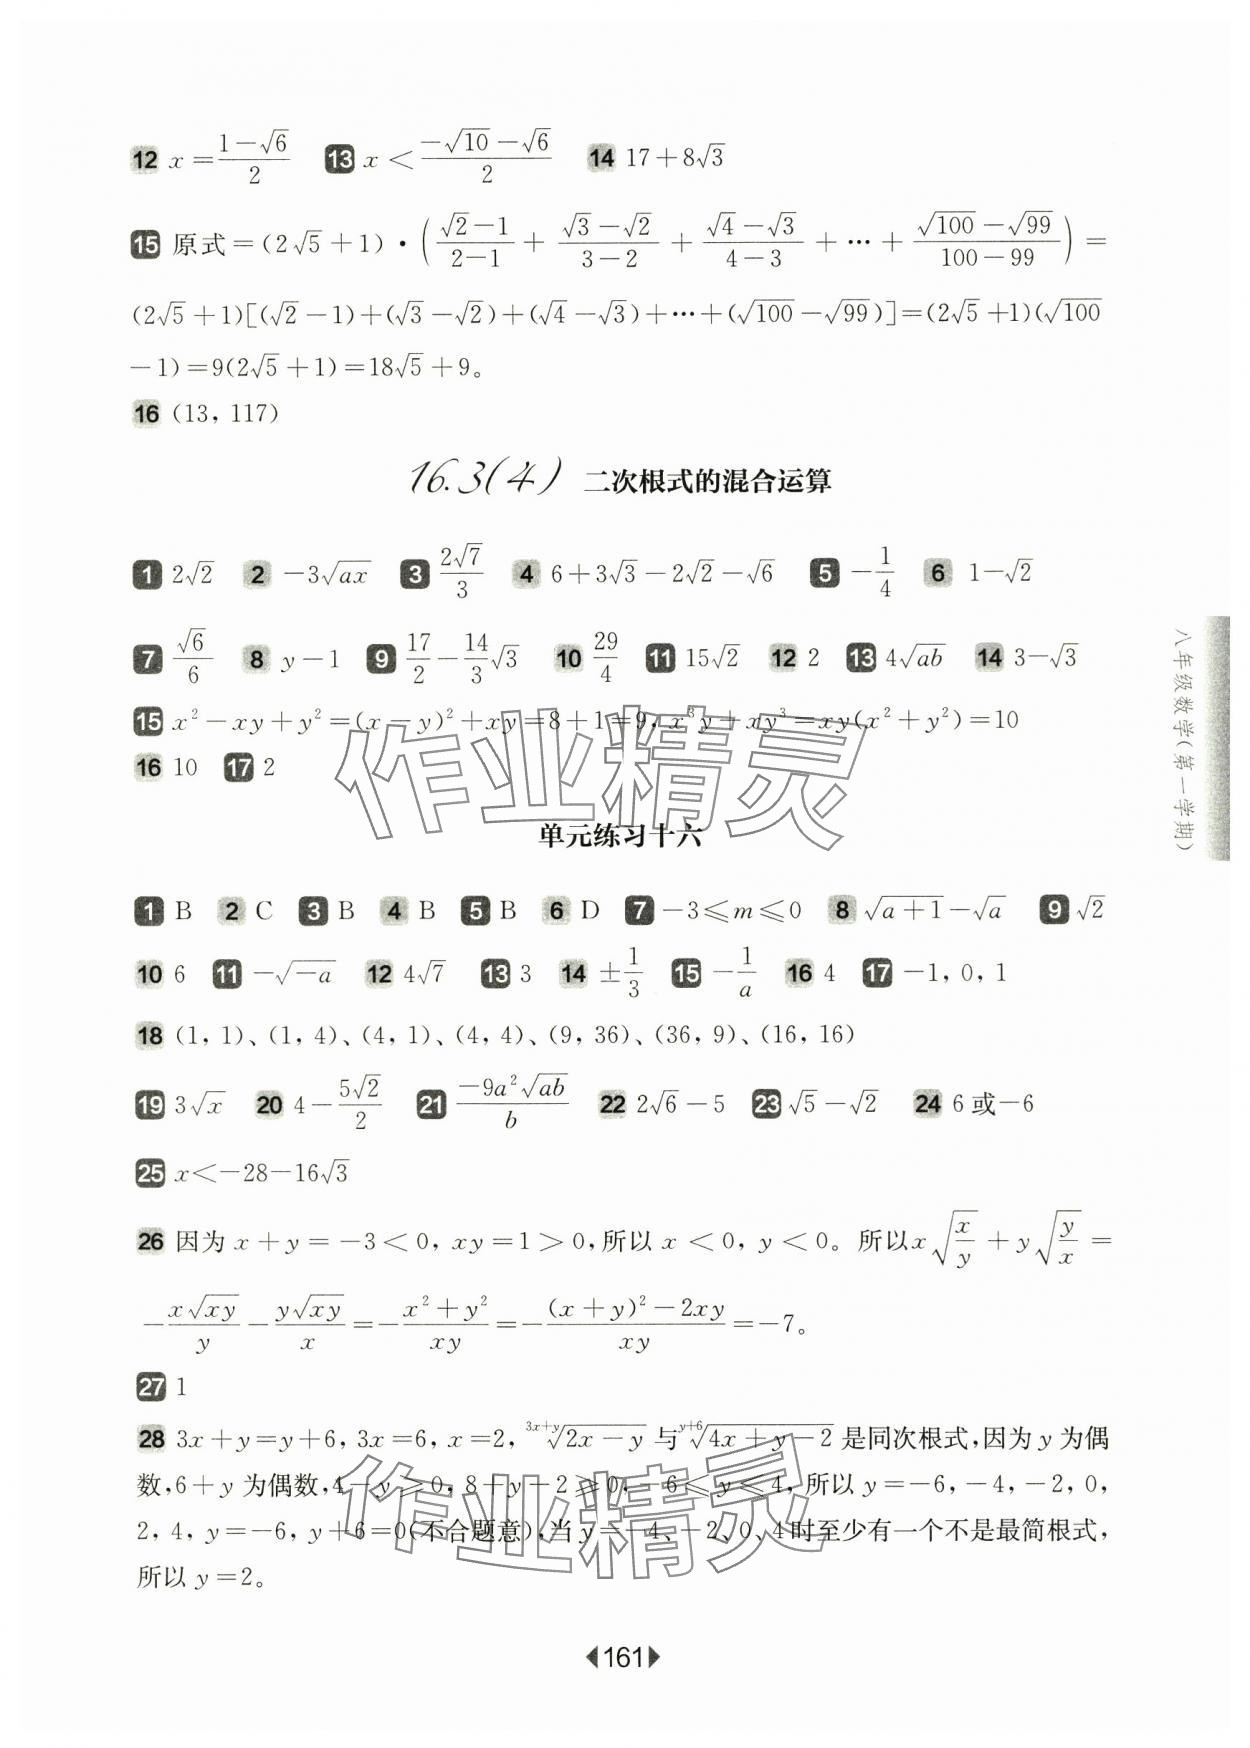 12 x=\frac{1-\sqrt{6}}{2} 13 x<\frac{-\sqrt{10}-\sqrt{6}}{2} 14 17+8\sqrt{3}
15 原式=(2\sqrt{5}+1)·(\frac{\sqrt{2}-1}{2-1}+\frac{\sqrt{3}-\sqrt{2}}{3-2}+\frac{\sqrt{4}-\sqrt{3}}{4-3}+…+\frac{\sqrt{100}-\sqrt{99}}{100-99})=
(2\sqrt{5}+1)[(\sqrt{2}-1)+(\sqrt{3}-\sqrt{2})+(\sqrt{4}-\sqrt{3})+…+(\sqrt{100}-\sqrt{99})]=(2\sqrt{5}+1)(\sqrt{100}
-1)=9(2\sqrt{5}+1)=18\sqrt{5}+9。
16 (13, 117)
16.3(4) 二次根式的混合运算
1 2\sqrt{2} 2 -3\sqrt{ax} 3 \frac{2\sqrt{7}}{3} 4 6+3\sqrt{3}-2\sqrt{2}-\sqrt{6} 5 -\frac{1}{4} 6 1-\sqrt{2}
7 \frac{\sqrt{6}}{6} 8 y-1 9 \frac{17}{2}-\frac{14}{3}\sqrt{3} 10 \frac{29}{4} 11 15\sqrt{2} 12 2 13 4\sqrt{ab} 14 3-\sqrt{3}
15 x²-xy+y²=(x-y)²+xy=8+1=9, x³y+xy³=xy(x²+y²)=10
16 10 17 2
单元练习十六
1 B 2 C 3 B 4 B 5 B 6 D 7 -3≤m≤0 8 \sqrt{a+1}-\sqrt{a} 9 \sqrt{2}
10 6 11 -\sqrt{-a} 12 4\sqrt{7} 13 3 14 ±\frac{1}{3} 15 -\frac{1}{a} 16 4 17 -1, 0, 1
18 (1, 1)、(1, 4)、(4, 1)、(4, 4)、(9, 36)、(36, 9)、(16, 16)
19 3\sqrt{x} 20 4-\frac{5\sqrt{2}}{2} 21 \frac{-9a²\sqrt{ab}}{b} 22 2\sqrt{6}-5 23 \sqrt{5}-\sqrt{2} 24 6或-6
25 x<-28-16\sqrt{3}
26 因为x+y=-3<0, xy=1>0,所以x<0, y<0。所以x\sqrt{\frac{x}{y}}+y\sqrt{\frac{y}{x}}=
-\frac{x\sqrt{xy}}{y}-\frac{y\sqrt{xy}}{x}=-\frac{x²+y²}{xy}=-\frac{(x+y)²-2xy}{xy}=-7。
27 1
28 3x+y=y+6, 3x=6, x=2, \sqrt[3x+y]{2x-y}与\sqrt[y+6]{4x+y-2}是同次根式,因为y为偶
数,6+y为偶数,4-y≥0, 8+y-2≥0, -6≤y≤4,所以y=-6, -4, -2, 0,
2, 4, y=-6, y+6=0(不合题意),当y=-4、-2、0、4时至少有一个不是最简根式,
所以y=2。
161
八年级数学(第一学期)
作业精灵
作业精灵